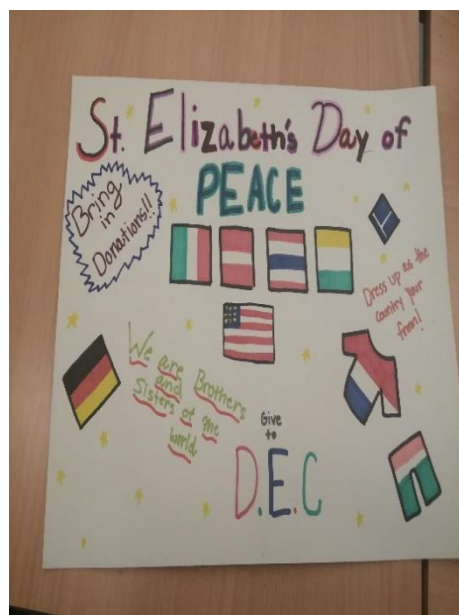 St. Elizabeth's Day of
PEACE
Bring
in
Donations!!
Dress up as the
country your
from!
We are Brothers
and
Sisters of the
world
Give
to
D.E.C